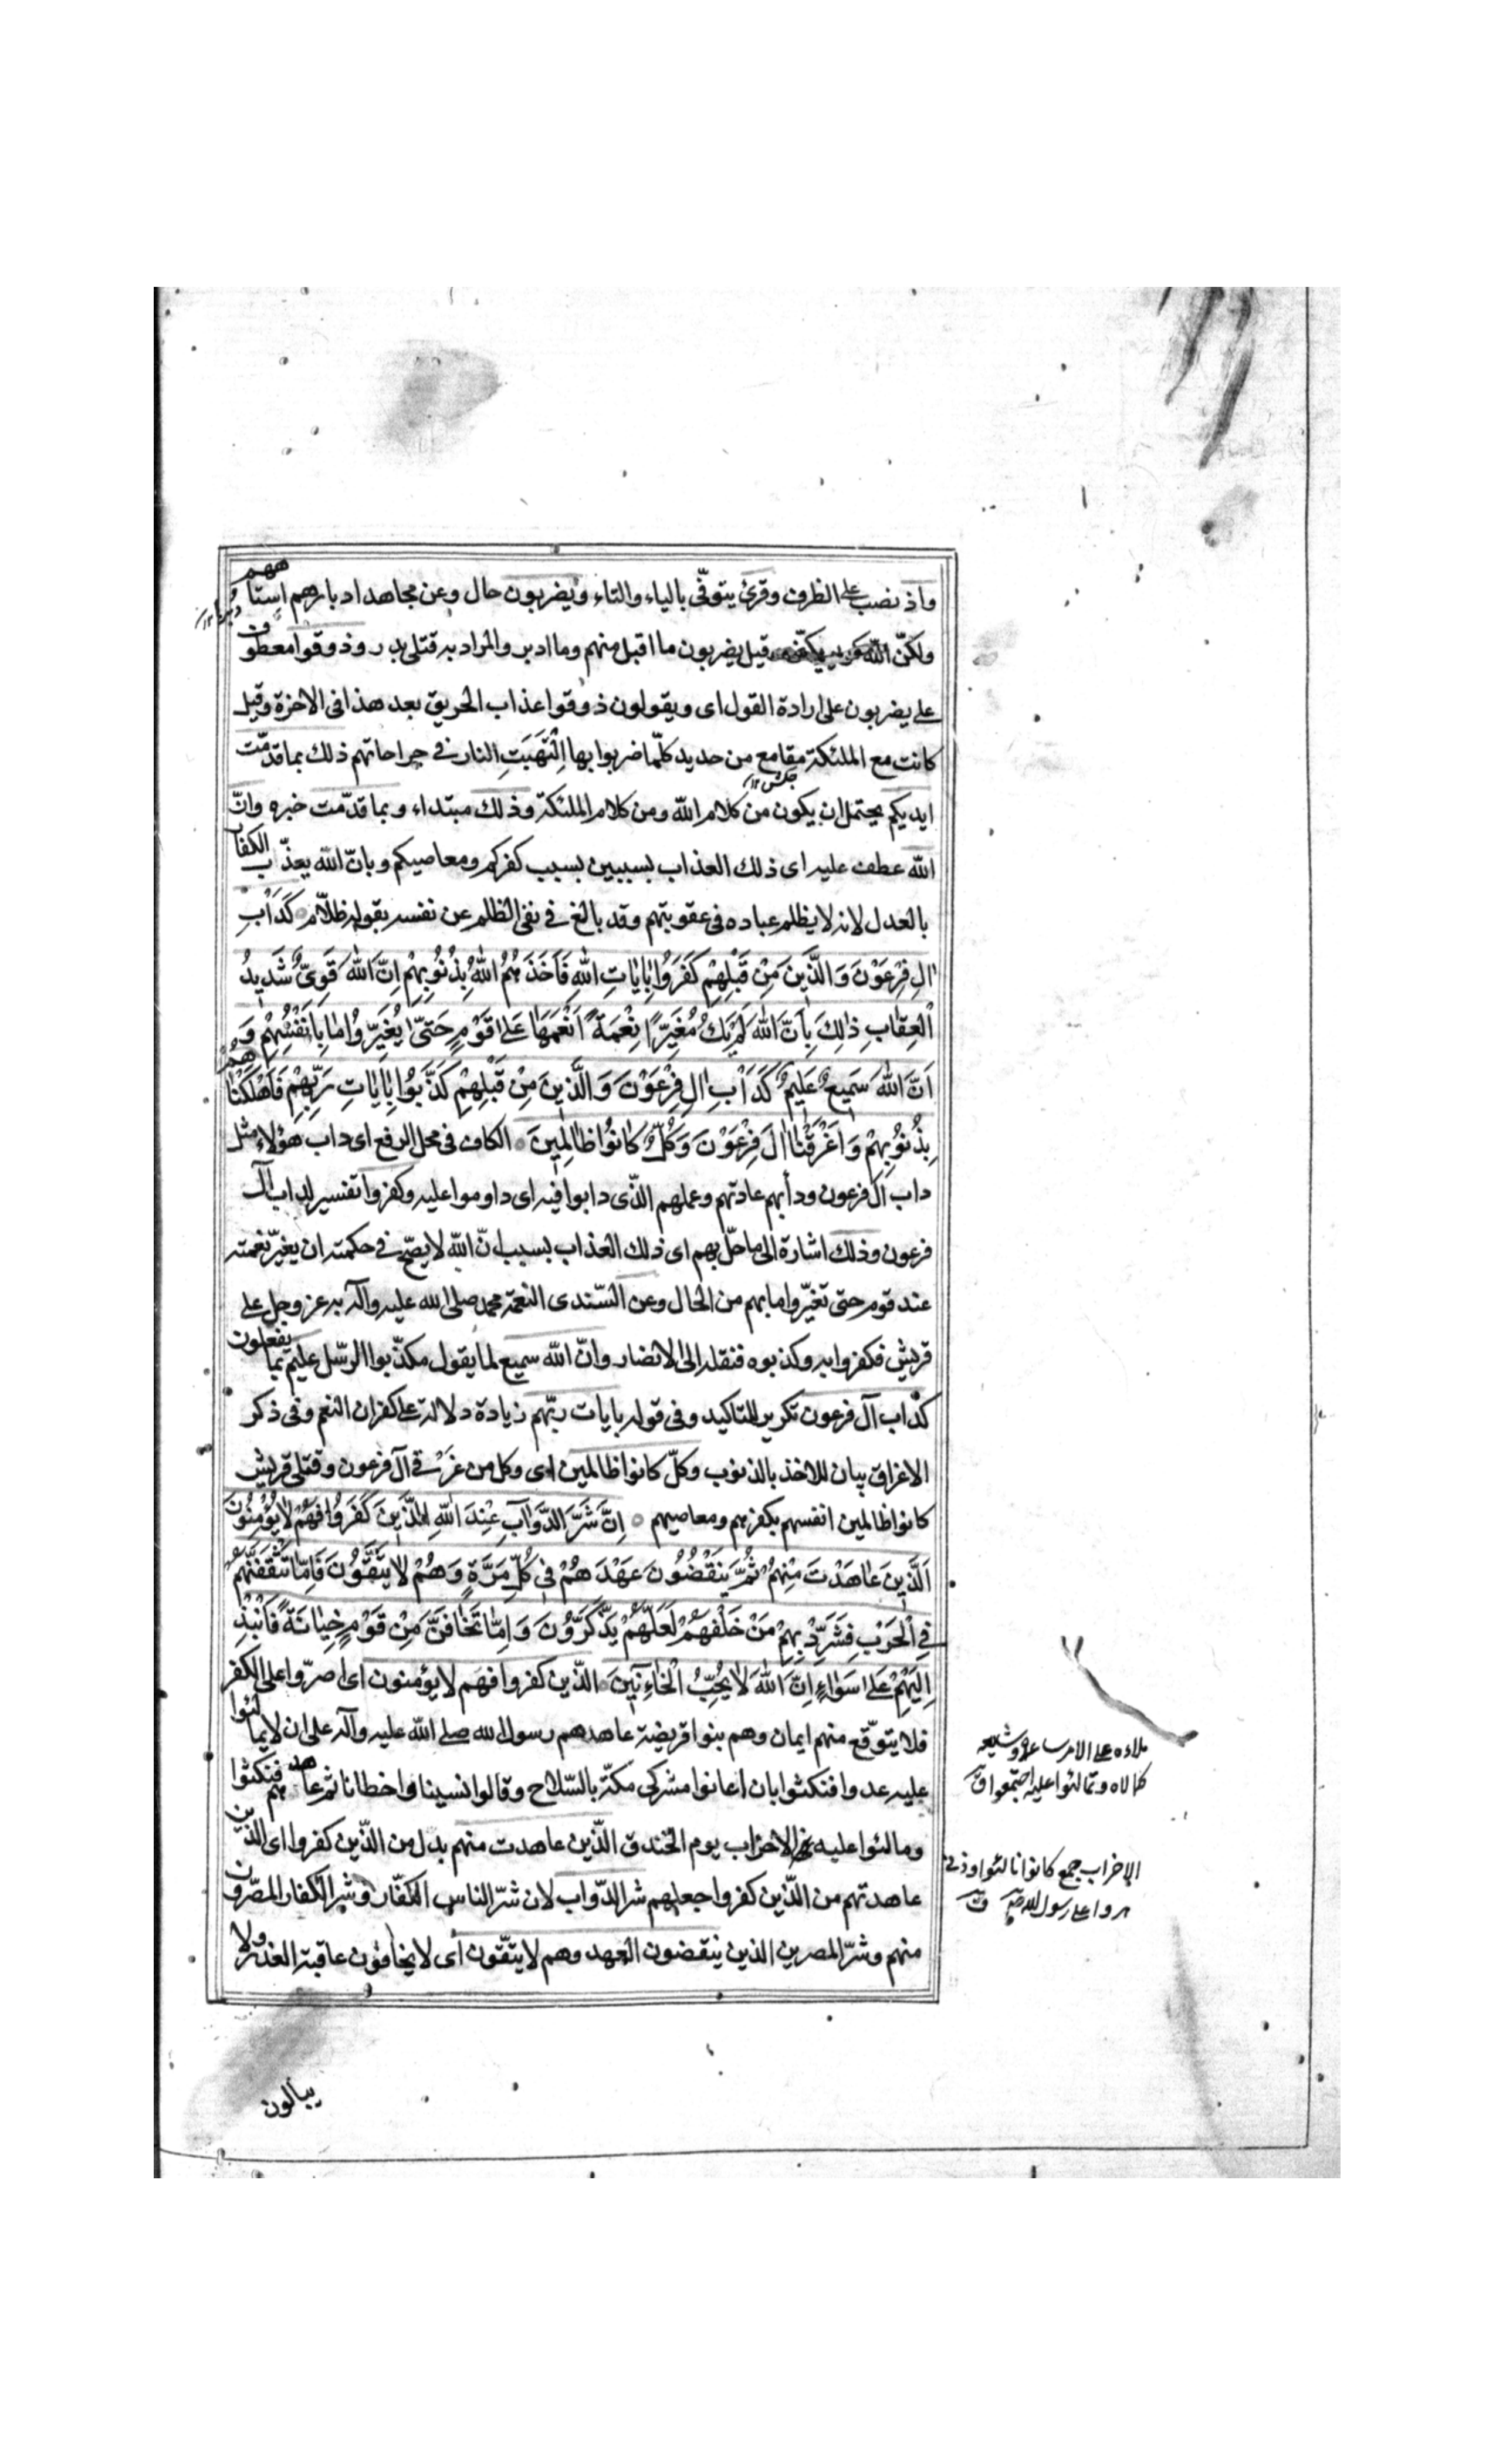 واذ نصب على الظرف وقرئ يتوفّى بالياء والتاء ويضربون حال وعن مجاهد ادبارهم استاههم
ولكنّ الله كريم يكنّى وقيل يضربون ما اقبل منهم وما ادبر والمراد به قتلى بدر وذوقوا معطوف
على يضربون على ارادة القول اى ويقولون ذوقوا عذاب الحريق بعد هذا فى الاخرة وقيل
كانت مع الملئكة مقامع من حديد كلّما ضربوا بها اِلْتَهَبَتِ النار فى جراحاتهم ذلك بما قدّمت
ايديكم يحتمل ان يكون من كلام الله ومن كلام الملئكة وذلك مبتداء وبما قدّمت خبره وانّ
الله عطف عليه اى ذلك العذاب بسببين بسبب كفركم ومعاصيكم وبانّ الله يعذّب الكفار
بالعدل لانه لا يظلم عباده فى عقوبتهم وقد بالغ فى نفى الظلم عن نفسه بقوله ظلّام كَدَأْبِ
اٰلِ فِرْعَوْنَ وَالَّذِينَ مِنْ قَبْلِهِمْ كَفَرُوا بِاٰيَاتِ اللّٰهِ فَاَخَذَهُمُ اللّٰهُ بِذُنُوبِهِمْ اِنَّ اللّٰهَ قَوِىٌّ شَدِيدُ
الْعِقَابِ ذٰلِكَ بِاَنَّ اللّٰهَ لَمْ يَكُ مُغَيِّرًا نِعْمَةً اَنْعَمَهَا عَلٰى قَوْمٍ حَتّىٰ يُغَيِّرُوا مَا بِاَنْفُسِهِمْ وَ
اَنَّ اللّٰهَ سَمِيعٌ عَلِيمٌ كَدَأْبِ اٰلِ فِرْعَوْنَ وَالَّذِينَ مِنْ قَبْلِهِمْ كَذَّبُوا بِاٰيَاتِ رَبِّهِمْ فَاَهْلَكْنَاهُمْ
بِذُنُوبِهِمْ وَاَغْرَقْنَا اٰلَ فِرْعَوْنَ وَكُلٌّ كَانُوا ظَالِمِينَ الكاف فى محل الرفع اى داب هؤلاء مثل
داب آل فرعون ودأبهم عادتهم وعملهم الذّى دابوا فيه اى داوموا عليه وكفروا تفسير لداب آل
فرعون وذلك اشارة الى ما حلّ بهم اى ذلك العذاب بسبب انّ الله لا يصحّ فى حكمته ان يغيّر نعمته
عند قوم حتى تغيّروا ما بهم من الحال وعن السّدى النعمة محمد صلى الله عليه وآله به عز وجل على
قريش فكفروا به وكذبوه فنقله الى الانصار وانّ الله سميع لما يقول مكذّبوا الرّسل عليم بما يفعلون
كدأب آل فرعون تكرير للتاكيد وفى قوله بايات ربّهم زيادة دلالة على كفران النعم وفى ذكر
الاغراق بيان للاخذ بالذنوب وكلّ كانوا ظالمين اى وكل من غرقى آل فرعون وقتلى قريش
كانوا ظالمين انفسهم بكفرهم ومعاصيهم اِنَّ شَرَّ الدَّوَآبِّ عِنْدَ اللّٰهِ الَّذِينَ كَفَرُوا فَهُمْ لَا يُؤْمِنُونَ
اَلَّذِينَ عَاهَدْتَ مِنْهُمْ ثُمَّ يَنْقُضُونَ عَهْدَهُمْ فِى كُلِّ مَرَّةٍ وَهُمْ لَا يَتَّقُونَ فَاِمَّا تَثْقَفَنَّهُمْ
فِى الْحَرْبِ فَشَرِّدْ بِهِمْ مَنْ خَلْفَهُمْ لَعَلَّهُمْ يَذَّكَّرُونَ وَاِمَّا تَخَافَنَّ مِنْ قَوْمٍ خِيَانَةً فَانْبِذْ
اِلَيْهِمْ عَلٰى سَوَاءٍ اِنَّ اللّٰهَ لَا يُحِبُّ الْخَآئِنِينَ الّذين كفروا فهم لا يؤمنون اى اصرّوا على الكفر
فلا يتوقّع منهم ايمان وهم بنوا قريضة عاهدهم رسول الله صلى الله عليه وآله على ان لا يمالئوا
عليه عدوا فنكثوا بان اعانوا مشركى مكّة بالسّلاح وقالوا نسينا واخطانا ثم عاهدهم فنكثوا
ومالئوا عليه الاحزاب يوم الخندق الّذين عاهدت منهم بدل من الّذين كفروا اى الذّين
عاهدتهم من الّذين كفروا جعلهم شر الدّواب لان شرّ الناس الكفّار وشر الكفار المصرّون
منهم وشرّ المصرين الذين ينقضون العهد وهم لا يتّقون اى لا يخافون عاقبة الغدر ولا
ملاءه على الامر ساعده وشيعه
كمالاه وتمالئوا عليه اجتمعوا ق
الاحزاب جمع كانوا تالئوا
على رسول الله
يبالون